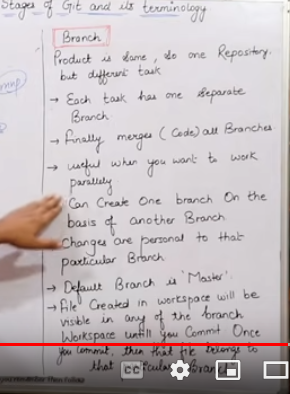 Stages of Git and its terminology
Branch
Product is same, so one Repository.
but different task
→ Each task has one separate
Branch
→ Finally merges (Code) all Branches
→ useful when you want to work
parallely.
Can Create One branch On the
basis of another Branch
Changes are personal to that
particular Branch
→ Default Branch is 'Master'.
→ File Created in workspace will be
visible in any of the branch
Workspace untill you Commit Once
you commit, then that file belongs to
that particular Branch
CC